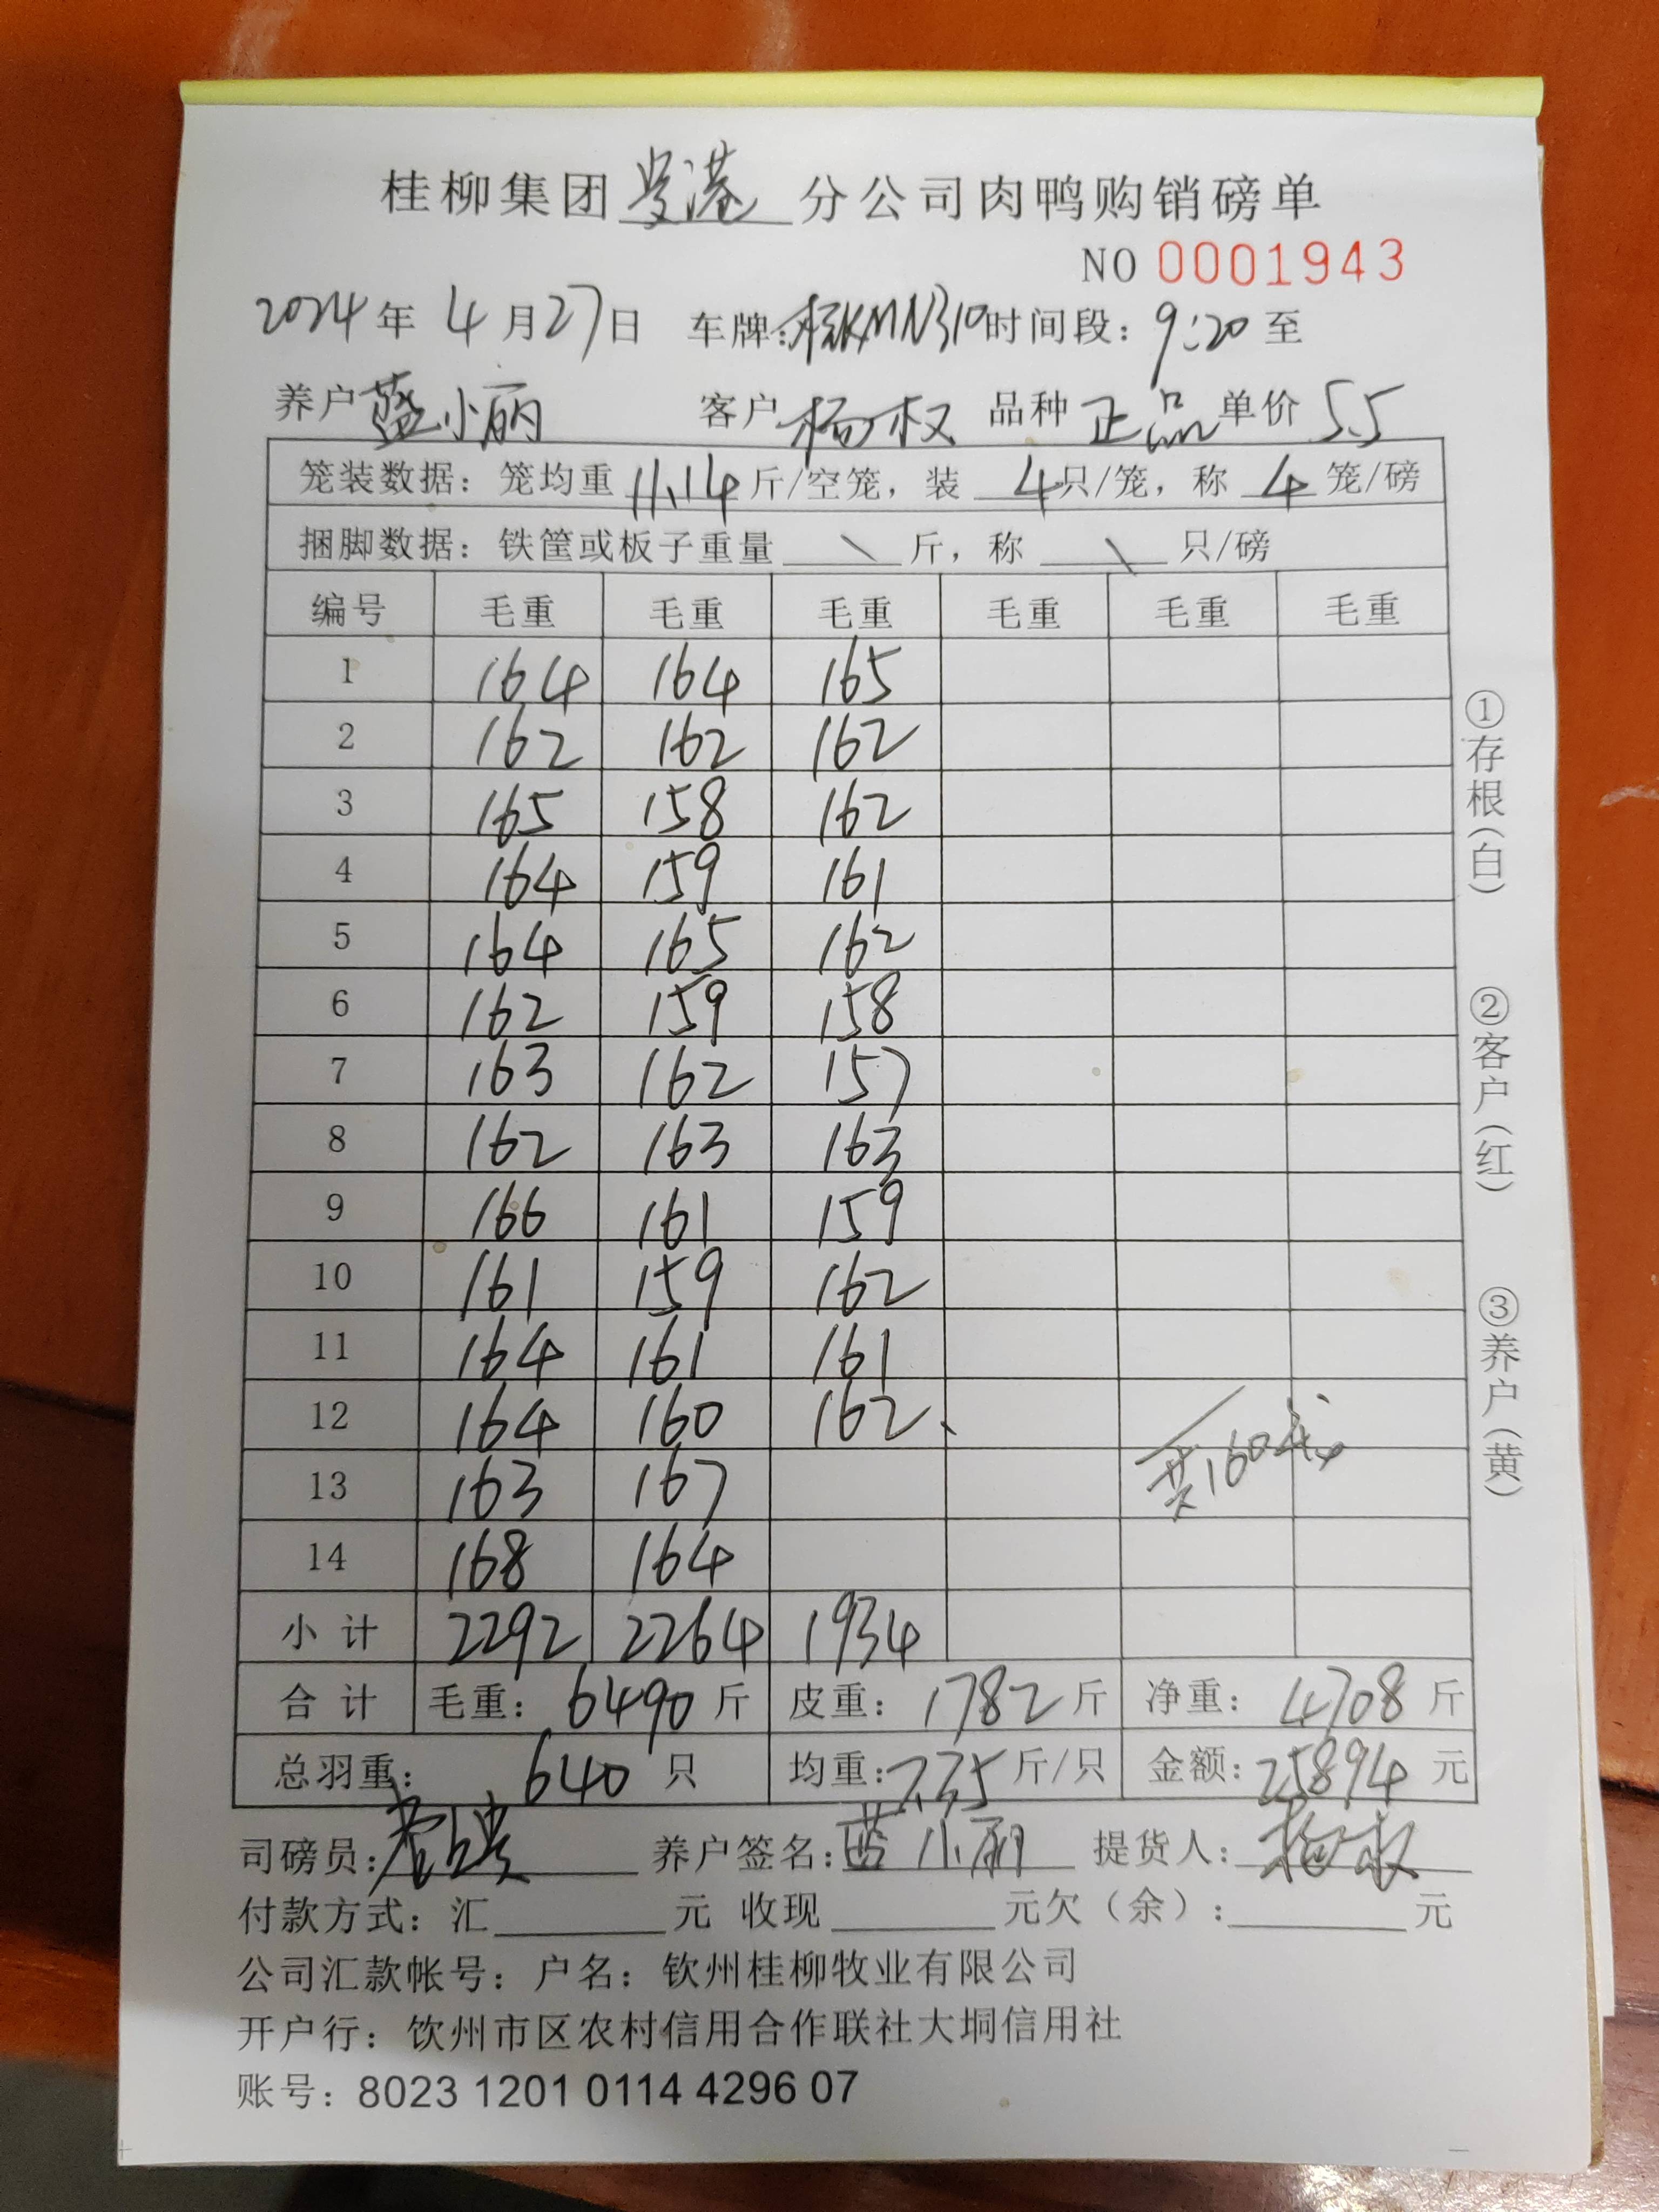 桂柳集团贵港分公司肉鸭购销磅单
NO 0001943
2024年 4月27日 车牌:桂KMN310时间段:9:20至
养户 蓝小丽 客户 杨权 品种 正品 单价 5.5
笼装数据:笼均重 11.14 斤/空笼,装 4只/笼,称 4 笼/磅
捆脚数据:铁筐或板子重量 \ 斤,称 \ 只/磅
编号 毛重 毛重 毛重 毛重 毛重 毛重
1 164 164 165
2 162 162 162
3 165 158 162
4 164 159 161
5 164 165 162
6 162 159 158
7 163 162 157
8 162 163 163
9 166 161 159
10 161 159 162
11 164 161 161
12 164 160 162、
13 163 167
共160笼
14 168 164
小计 2292 2264 1934
合计 毛重:6490斤 皮重:1782斤 净重:4708斤
总羽重:640 只 均重:7.35斤/只 金额:25894元
司磅员: 养户签名:蓝小丽 提货人:杨权
付款方式:汇 元 收现 元欠(余): 元
公司汇款帐号:户名:钦州桂柳牧业有限公司
开户行:钦州市区农村信用合作联社大垌信用社
账号:8023 1201 0114 4296 07
①存根(白) ②客户(红) ③养户(黄)